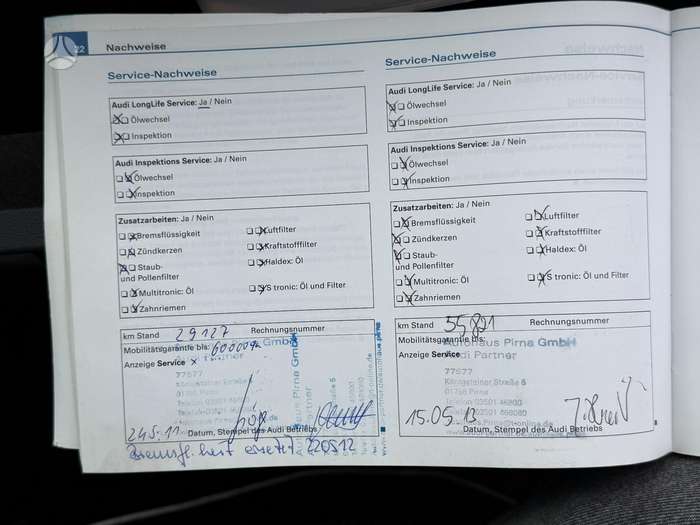 22 Nachweise
Service-Nachweise
Audi LongLife Service: Ja / Nein
Ölwechsel
Inspektion
Audi Inspektions Service: Ja / Nein
Ölwechsel
Inspektion
Zusatzarbeiten: Ja / Nein
Bremsflüssigkeit
Luftfilter
Zündkerzen
Kraftstofffilter
Staub-
und Pollenfilter
Haldex: Öl
Multitronic: Öl
S tronic: Öl und Filter
Zahnriemen
km Stand 29127 Rechnungsnummer
Mobilitätsgarantie bis:
Anzeige Service
77577
Autohaus Pirna GmbH
24.5.11
Datum, Stempel des Audi Betriebs
Bremsfl. 220512
Service-Nachweise
Audi LongLife Service: Ja / Nein
Ölwechsel
Inspektion
Audi Inspektions Service: Ja / Nein
Ölwechsel
Inspektion
Zusatzarbeiten: Ja / Nein
Bremsflüssigkeit
Luftfilter
Zündkerzen
Kraftstofffilter
Staub-
und Pollenfilter
Haldex: Öl
Multitronic: Öl
S tronic: Öl und Filter
Zahnriemen
km Stand 55821 Rechnungsnummer
Mobilitätsgarantie bis:
Autohaus Pirna GmbH
Anzeige Service
Audi Partner
77577
Königsteiner Straße 5
01796 Pirna
Telefon 03501 46800
15.05.13
Datum, Stempel des Audi Betriebs